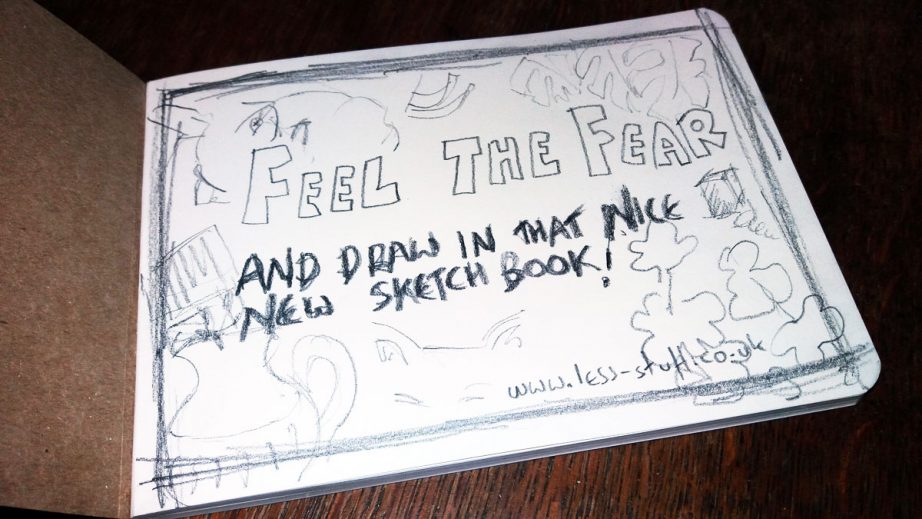 FEEL THE FEAR
AND DRAW IN THAT NICE
NEW SKETCH BOOK!
www.less-stuff.co.uk